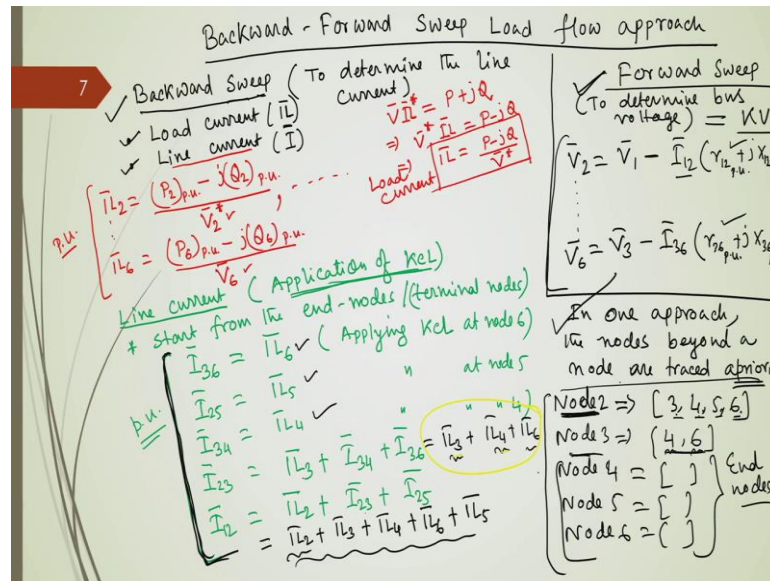 Backward - Forward Sweep Load flow approach
7
✓ Backward Sweep (To determine the line
current)
✓ Load current (I̅L)
✓ Line current (I̅)
V̅ I̅L* = P+jQ
⇒ V̅* I̅L = P-jQ
Load current I̅L = (P-jQ)/V̅*
p.u. I̅L2 = ((P2)p.u. - j(Q2)p.u.)/V̅2* ✓, .....
⋮
I̅L6 = ((P6)p.u. - j(Q6)p.u.)/V̅6 ✓
Line current (Application of KCL)
* start from the end-nodes/(terminal nodes)
p.u. I̅36 = I̅L6 ✓ (Applying KCL at node 6)
I̅25 = I̅L5 ✓ " at node 5
I̅34 = I̅L4 ✓ " " " 4)
I̅23 = I̅L3 + I̅34 + I̅36 = I̅L3 + I̅L4 + I̅L6
I̅12 = I̅L2 + I̅23 + I̅25
= I̅L2 + I̅L3 + I̅L4 + I̅L6 + I̅L5
✓ Forward Sweep
(To determine bus
voltage) = KV
V̅2 = V̅1 - I̅12 (r12p.u. + jX12
⋮
V̅6 = V̅3 - I̅36 (r36p.u. + jX36
✓ In one approach,
the nodes beyond a
node are traced apriori
Node 2 => [3, 4, 5, 6]
Node 3 => [4, 6]
Node 4 = [ ]
Node 5 = [ ]
Node 6 = [ ]
End
nodes